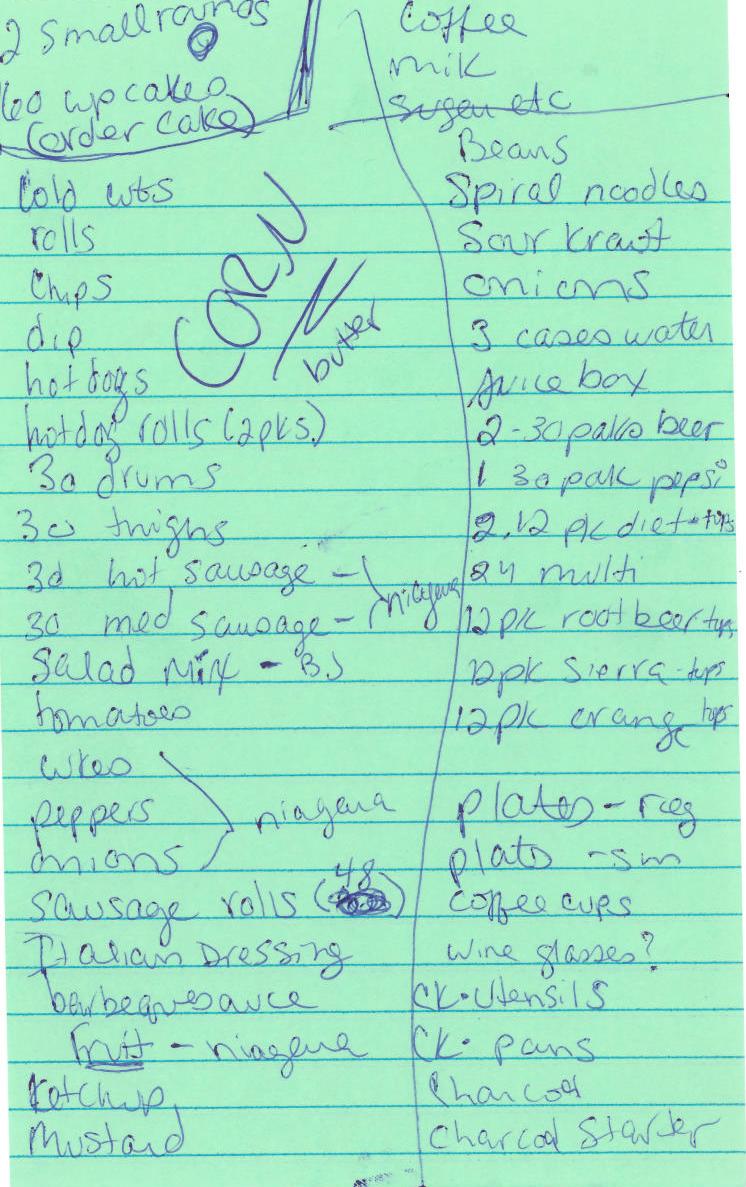 2 Small rounds
60 cupcakes
(order cake)
Cold cuts
rolls
Chips
dip
hot dogs
hotdog rolls (2pks.)
30 drums
30 thighs
30 hot sausage -
30 med sausage - niagera
Salad Mix - BJ
tomatoes
cukes
peppers
niagera
onions
48
sausage rolls (
Italian Dressing
barbeque sauce
fruit - niagera
Ketchup
Mustard
CORN
butter
Coffee
milk
Sugar etc
Beans
Spiral noodles
Sour Kraut
onions
3 cases water
Juice box
2-30 paks beer
1 30 pak pepsi
2.12 pk diet - tops
24 multi
12 pk root beer tops
12pk Sierra - tops
12 pk orange tops
plates - reg
plates - sm
coffee cups
wine glasses?
CK. Utensils
CK. pans
Charcoal
Charcoal Starter